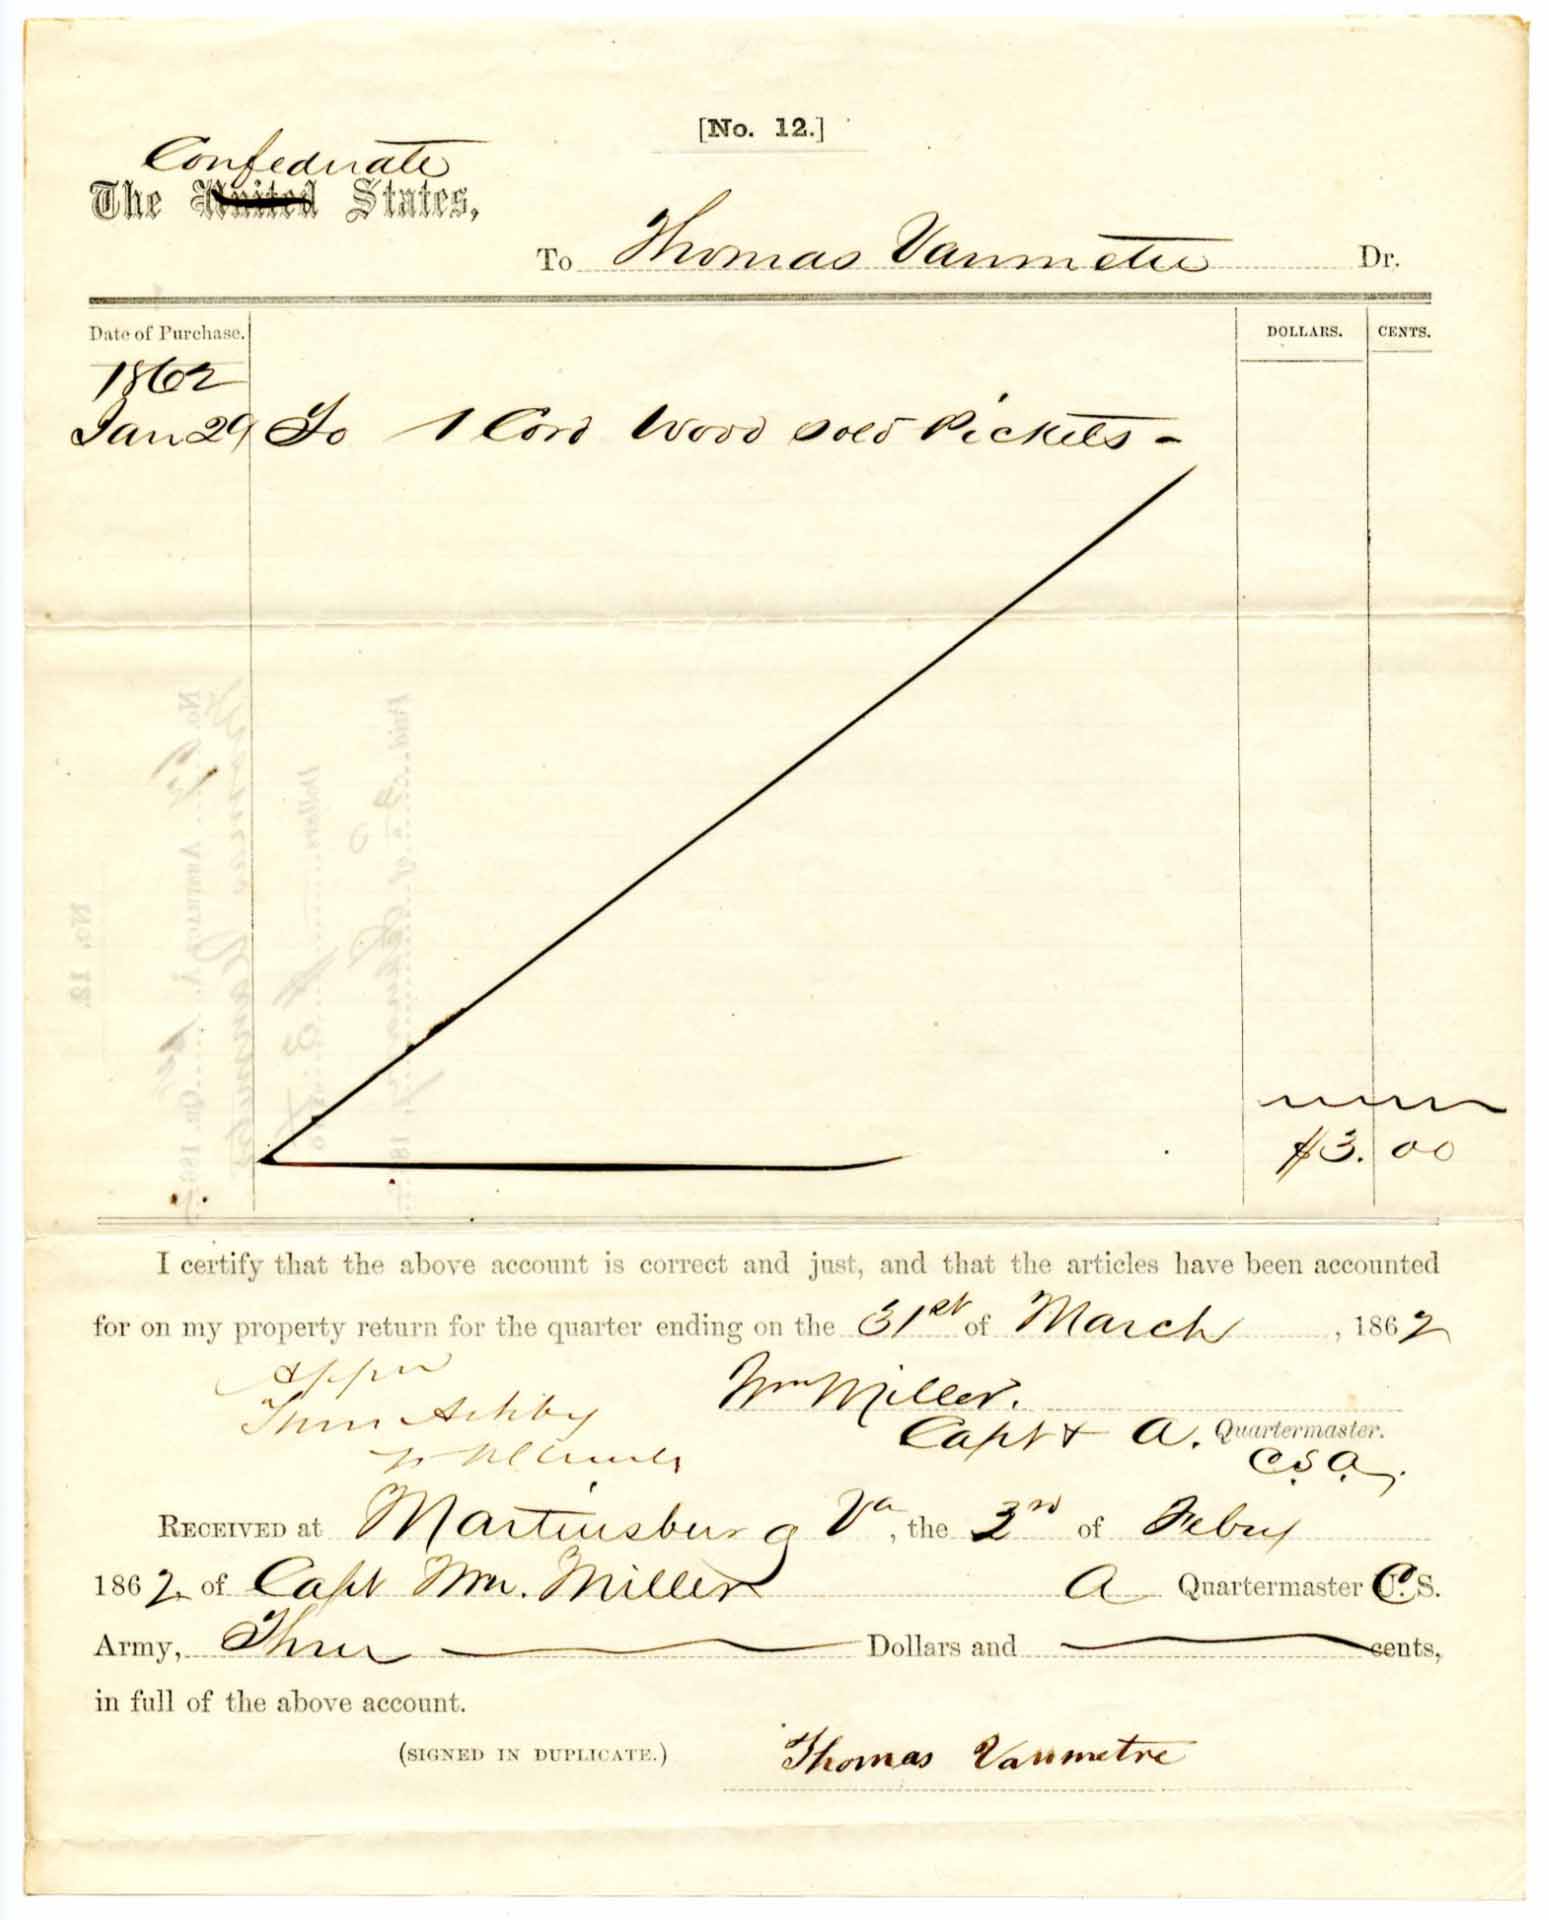 [No. 12.]
Confederate
The United States,
To Thomas Vanmetre Dr.
Date of Purchase. DOLLARS. CENTS.
1862
Jan 29 To 1 Cord Wood sold Pickets -
$3. 00
I certify that the above account is correct and just, and that the articles have been accounted
for on my property return for the quarter ending on the 31st of March, 1862
Wm Miller.
Turner Ashby
Capt & A. Quartermaster.
C.S.A.
RECEIVED at Martinsburg Va, the of Febry
1862 of Capt Wm. Miller A Quartermaster C.S.
Army, Three Dollars and cents,
in full of the above account.
(SIGNED IN DUPLICATE.) Thomas Vanmetre